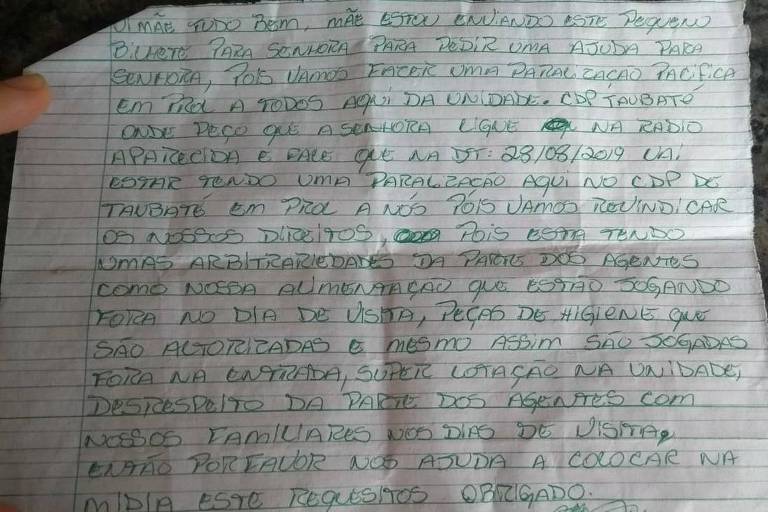 OI MÃE TUDO BEM, MÃE ESTOU ENVIANDO ESTE PEQUENO
BILHETE PARA SENHORA PARA PEDIR UMA AJUDA PARA
SENHORA, POIS VAMOS FAZER UMA PARALIZAÇÃO PACIFICA
EM PROL A TODOS AQUI DA UNIDADE. CDP TAUBATÉ
ONDE PEÇO QUE A SENHORA LIGUE NA RADIO
APARECIDA E FALE QUE NA DT: 28/08/2019 VAI
ESTAR TENDO UMA PARALIZAÇÃO AQUI NO CDP DE
TAUBATÉ EM PROL A NÓS PÓIS VAMOS REVINDICAR
OS NOSSOS DIREITOS, POIS ESTA TENDO
UMAS ARBITRARIEDADES DA PARTE DOS AGENTES
COMO NOSSA ALIMENTAÇÃO QUE ESTÃO JOGANDO
FORA NO DIA DE VISITA, PEÇAS DE HIGIENE QUE
SÃO ALTORIZADAS E MESMO ASSIM SÃO JOGADAS
FORA NA ENTRADA, SUPER LOTAÇÃO NA UNIDADE,
DESRESPEITO DA PARTE DOS AGENTES COM
NOSSOS FAMILIARES NOS DIAS DE VISITA,
ENTÃO PORFAVOR NOS AJUDA A COLOCAR NA
MIDIA ESTE REQUESITOS OBRIGADO.